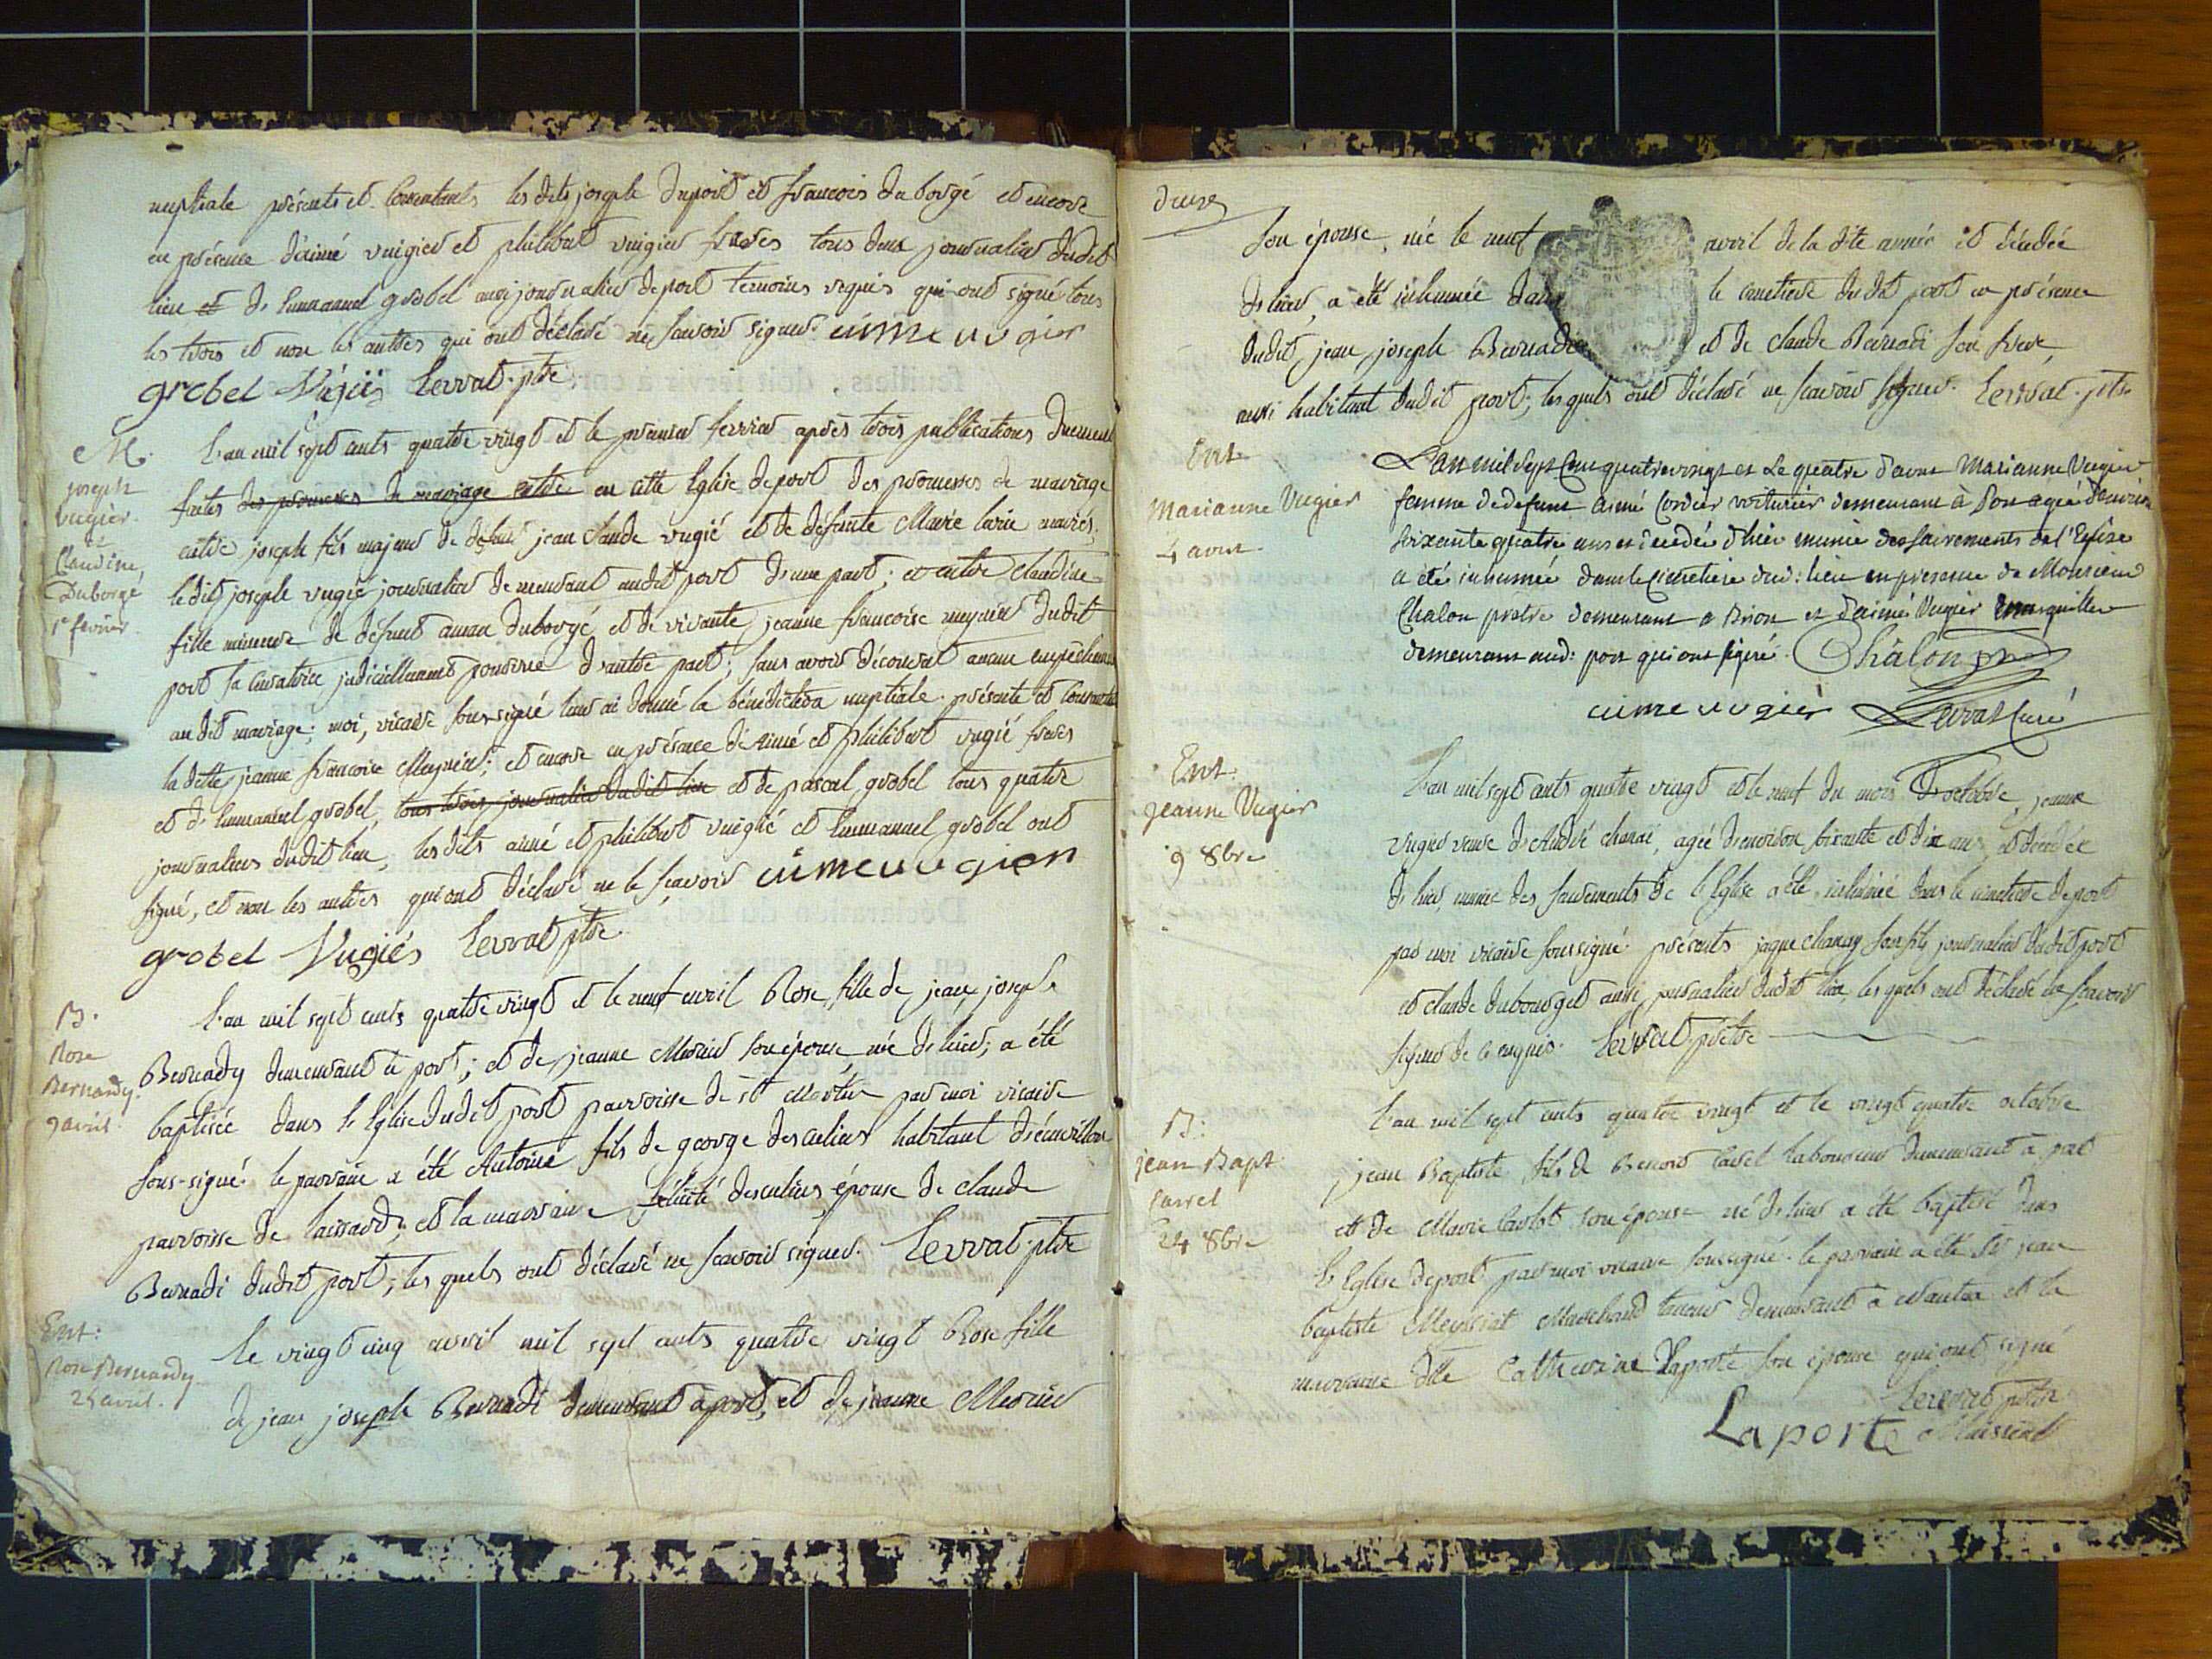 nuptiale présents et consentants les dits joseph duport et francois duborgé et encore
en présence d'aimé vugier et philibert vugier freres tous deux journaliers dudit
lieu et d'emmanuel grobel aussi journalier de port temoins requis qui ont signé tous
les trois et non les autres qui ont déclaré ne scavoir signer. aime vugier
grobel Vugiés Levrat ptre
M.
joseph
vugier
et
Claudine
Duborgé
1er fevrier
L'an mil sept cents quatre vingt et le premier fevrier après trois publications duement
faites des promesses de mariage entre en cette Eglise de port des promesses de mariage
entre joseph fils majeur de défunt jean claude vugié et de défunte Marie mariés,
ledit joseph vugié journalier demeurant audit port d'une part; et entre claudine
fille mineure de défunt duborgé et de vivante jeanne francoise meynier dudit
port sa curatrice judiciellement pourvue d'autre part; sans avoir découvert aucun empêchement
au dit mariage; moi, vicaire soussigné leur ai donné la bénédiction nuptiale présente et consentante
la ditte jeanne francoise Meynier; et encore en présence d'Aimé et philibert vugié freres
et d'emmanuel grobel, tous trois journaliers dudit lieu et de pascal grobel tous quatre
journaliers dudit lieu, les dits aimé et philibert vugié et Emmanuel grobel ont
signé, et non les autres qui ont déclaré ne le scavoir aime vugier
grobel Vugiés Levrat ptre
B.
Rose
Bernardy.
9 avril.
L'an mil sept cents quatre vingt et le neuf avril Rose fille de jean joseph
Bernady demeurant à port; et de jeanne Mernier son épouse, née d'hier; a été
baptisée dans l'Eglise dudit port parroisse de st Martin par moi vicaire
sous-signé. le parrain a été Antoine fils de george habitant
parroisse de et la marraine félicité épouse de claude
Bernadi dudit port; les quels ont déclaré ne scavoir signer. Levrat ptre
Ent:
Rose Bernardy
25 avril.
Le vingt cinq avril mil sept cents quatre vingt Rose fille
de jean joseph Bernadi demeurant à port, et de jeanne Mernier
deux
son épouse, née le neuf avril de la dite année et décédée
d'hier, a été inhumée dans le cimetiere dudit port en présence
dudit jean joseph Bernadi et de claude Bernadi son frere,
aussi habitant dudit port; les quels ont déclaré ne scavoir signer. Levrat ptre
Ent
Marianne Vugier
4 avril
L'an mil sept cent quatrevingt et Le quatre d'avril Marianne Vugier
femme de defunt aimé Cordier voiturier demeurant à Port agée d'environ
soixante quatre ans et decedée d'hier munie des sacrements de l'Eglise
a été inhumée dans le Cimetiere dud: lieu en presence de Monsieur
Chalon pretre demeurant a Brion et d'aimé Vugier
demeurant aud: port qui ont signé. Chalon ptre
aime vugier Levrat curé
Ent.
Jeanne Vugier
9 8bre
L'an mil sept cents quatre vingt et le neuf du mois d'octobre, jeanne
vugier veuve d'André chanai, agée d'environ soixante et dix ans, et décédée
d'hier, munie des sacrements de l'Eglise a été inhumée dans le cimetiere de port
par moi vicaire soussigné présents jaque chanay son fils journalier dudit port
et claude dubourget aussi journalier dudit lieu, les quels ont déclaré ne scavoir
signer de ce enquis. Levrat prêtre
B:
jean Bapt
Carrel
24 8bre
L'an mil sept cents quatre vingt et le vingt quatre octobre
jean Baptiste fils de Carrel laboureur demeurant à port
et de Marie son épouse né d'hier a été baptisé dans
l'Eglise de port par moi vicaire soussigné. le parrain a été Sr jean
baptiste Meyssiat Marchand taneur demeurant à Nantua et la
marraine Dlle Catherine Laporte son épouse qui ont signé
Levrat ptre
Laporte Maissiat